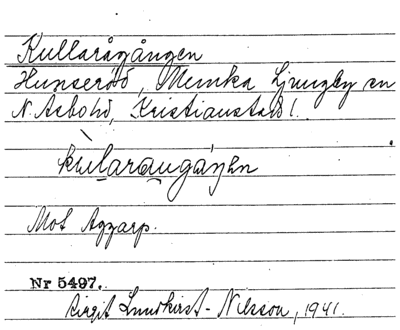 Kullarågången
Hunseröd, Munka Ljungby sn
N. Åsbo hd, Kristianstads l.
Mot Aggarp.
Nr 5497.
Birgit Lundkvist-Nilsson, 1941.